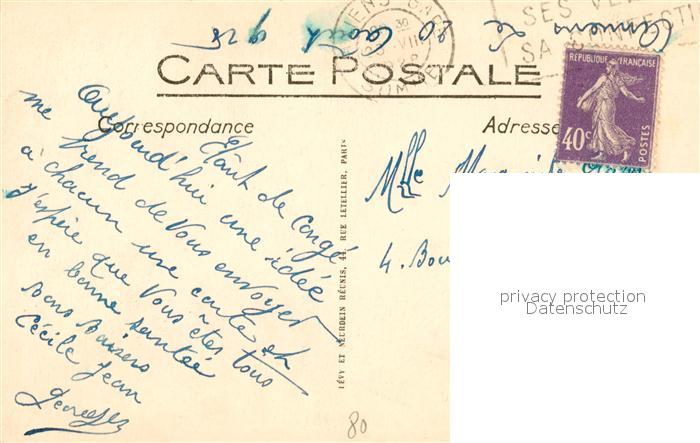 Amiens le 20 Août 1928
AMIENS GARE
SOMME
SES
CARTE POSTALE
RÉPUBLIQUE FRANÇAISE
40c
POSTES
Correspondance
Adresse
Étant de congé
Aujourd'hui une idée
me prend de vous envoyer
à chacun une carte et
j'espère que vous êtes tous
en bonne santée
Bons Baisers
Cécile Jean
Georges
Mlle
4. Bou
LÉVY ET NEURDEIN RÉUNIS, 44, RUE LETELLIER, PARIS
80
privacy protection
Datenschutz